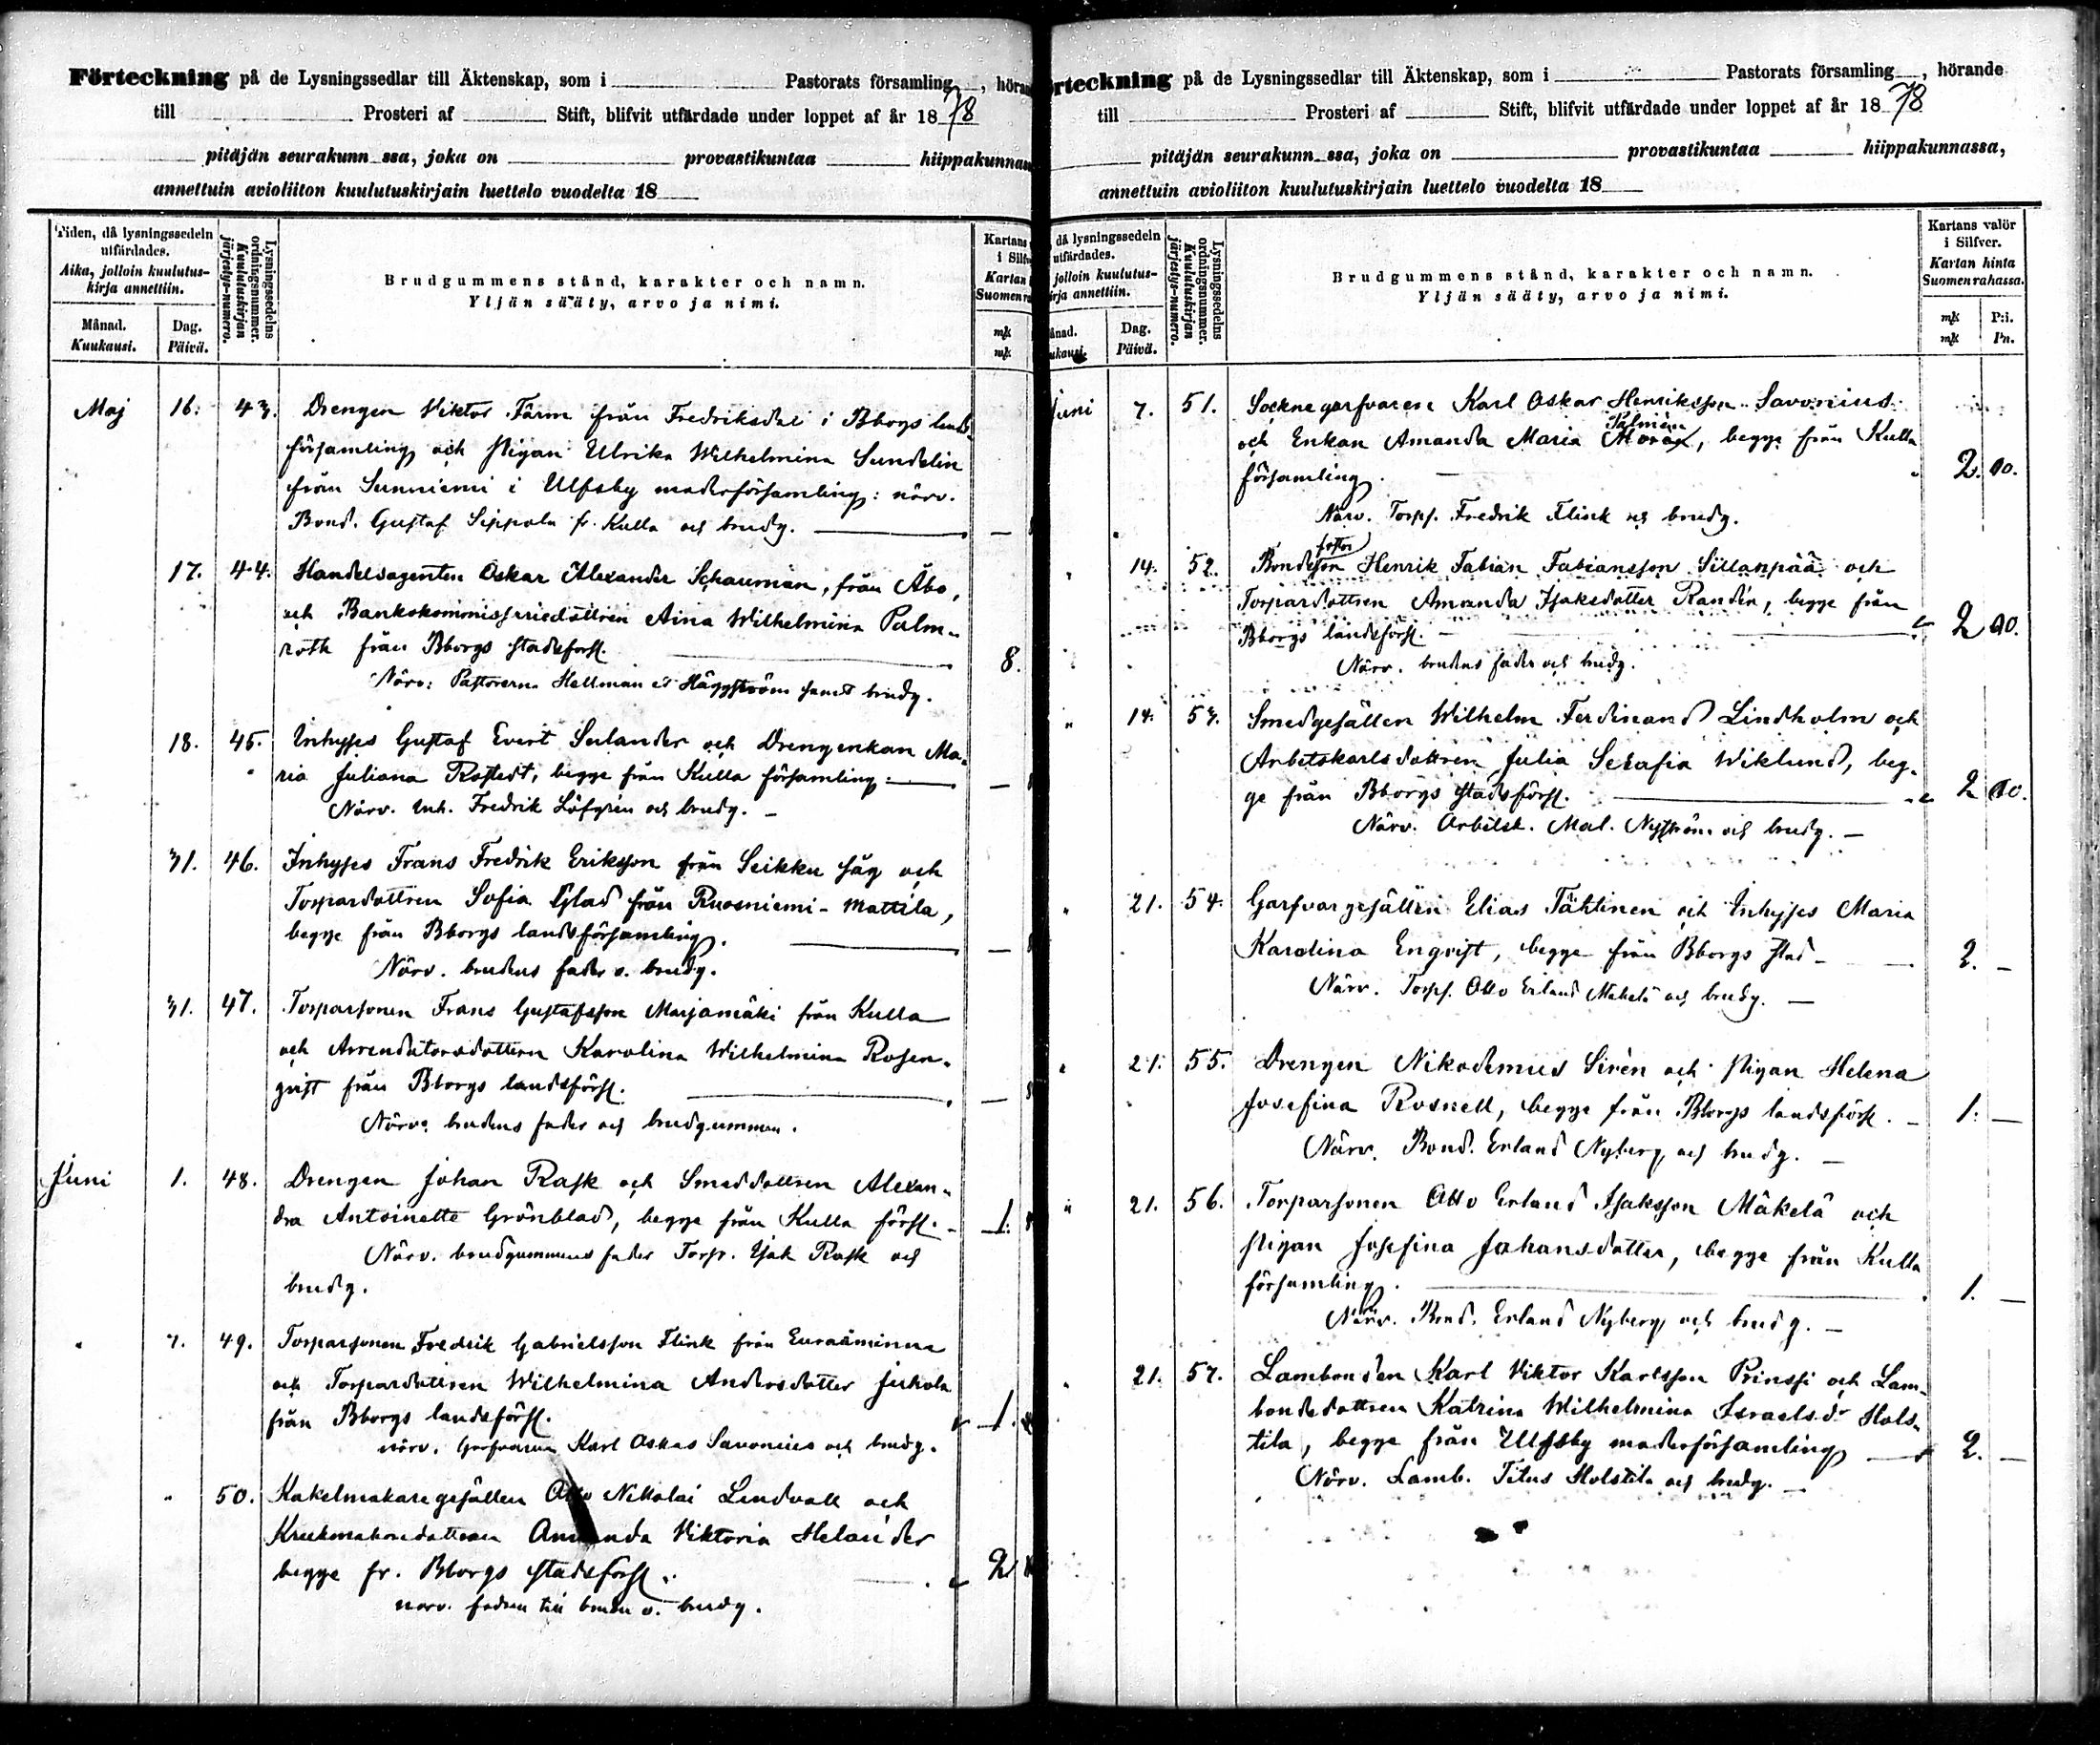 Förteckning på de Lysningssedlar till Äktenskap, som i Pastorats församling, höran
till Prosteri af Stift, blifvit utfärdade under loppet af år 1878
pitäjän seurakunn ssa, joka on provastikuntaa hiippakunnan
annettuin avioliiton kuulutuskirjain luettelo vuodelta 18
Tiden, då lysningssedeln utfärdades.
Aika, jolloin kuulutuskirja annettiin.
Månad.
Kuukausi.
Dag.
Päivä.
Lysningssedelns ordningsnummer.
Kuulutuskirjan järjestys-numero.
Brudgummens stånd, karakter och namn.
Yljän sääty, arvo ja nimi.
Kartans
i Silfv
Kartan
Suomen ra
mk
mk
Maj 16. 43. Drengen Viktor Färm från Fredriksdal i Bborgs lands
församling och Pigan Ulrika Wilhelmina Sundelin
från Sunniemi i Ulfsby moderförsamling: närv.
Bond. Gustaf Sippola fr. Kulla och brudg. —
17. 44. Handelsagenten Oskar Alexander Schauman, från Åbo,
och Bankokommissariedottren Aina Wilhelmina Palm-
roth från Bborgs stadsförs. 8.
Närv: Pastorerna Hellman o Häggström samt brudg.
18. 45. Inhyses Gustaf Evert Selander och Drengenkan Ma-
ria Juliana Rostedt, begge från Kulla församling: —
Närv. Inh. Fredrik Löfgrén och brudg. —
31. 46. Inhyses Frans Fredrik Eriksson från Seikku såg och
Torpardottren Sofia Glad från Ruosniemi-Mattila,
begge från Bborgs landsförsamling. —
Närv. brudens fader o. brudg.
31. 47. Torparsonen Frans Gustafsson Marjamäki från Kulla
och Arrendatorsdottern Karolina Wilhelmina Rosen-
qvist från Bborgs landsförs. —
Närv. brudens fader och brudgummen.
Juni 1. 48. Drengen Johan Rask och Smeddottren Alexan-
dra Antoinette Grönblad, begge från Kulla förs. — 1.
Närv. brudgummens fader Torp. Isak Rask och
brudg.
" 7. 49. Torparsonen Fredrik Gabrielsson Flink från Euraåminne
och Torpardottren Wilhelmina Andersdotter Juhola
från Bborgs landsförs. 1.
närv. Garfvaren Karl Oskar Savonius och brudg.
" 50. Kakelmakaregesällen Otto Nikolai Lindvall och
Krukmakaredottren Amanda Viktoria Helander
begge fr. Bborgs stadsförs. 2
närv. fadren till bruden o. brudg.
örteckning på de Lysningssedlar till Äktenskap, som i Pastorats församling, hörande
till Prosteri af Stift, blifvit utfärdade under loppet af år 1878
pitäjän seurakunn ssa, joka on provastikuntaa hiippakunnassa,
annettuin avioliiton kuulutuskirjain luettelo vuodelta 18
då lysningssedeln
utfärdades.
jolloin kuulutus-
irja annettiin.
ånad.
ukausi.
Dag.
Päivä.
Lysningssedelns ordningsnummer.
Kuulutuskirjan järjestys-numero.
Brudgummens stånd, karakter och namn.
Yljän sääty, arvo ja nimi.
Kartans valör
i Silfver.
Kartan hinta
Suomen rahassa.
mk P:i.
mk Pn.
Juni 7. 51. Socknegarfvaren Karl Oskar Henriksson Savonius
Palmén
och Enkan Amanda Maria, begge från Kulla
församling. 2. 10.
Närv. Torps. Fredrik Flink och brudg.
foster
" 14. 52. Bondeson Henrik Fabian Fabiansson Sillanpää och
Torpardottren Amanda Isaksdotter Randén, begge från
Bborgs landsförs. — 2 10.
Närv. brudens fader och brudg.
" 14. 53. Smedgesällen Wilhelm Ferdinand Lindholm och
Arbetskarlsdottren Julia Serafia Wiklund, beg-
ge från Bborgs stadsförs. 2 10.
Närv. Arbetsk. Mal. Nyström och brudg. —
" 21. 54. Garfvargesällen Elias Tähtinen och Inhyses Maria
Karolina Engvist, begge från Bborgs stad — 2. —
Närv. Torps. Otto Erland Mäkelä och brudg. —
" 21. 55. Drengen Nikodemus Sirén och Pigan Helena
Josefina Rosnell, begge från Bborgs landsförs. — 1. —
Närv. Bond. Erland Nyberg och brudg. —
" 21. 56. Torparsonen Otto Erland Isaksson Mäkelä och
Pigan Josefina Johansdotter, begge från Kulla
församling. 1. —
Närv. Bond. Erland Nyberg och brudg. —
" 21. 57. Lambonden Karl Viktor Karlsson Prinssi och Lam-
bondedottren Katrina Wilhelmina Israelsdr Hols-
tila, begge från Ulfsby moderförsamling — 2. —
Närv. Lamb. Titus Holstila och brudg. —